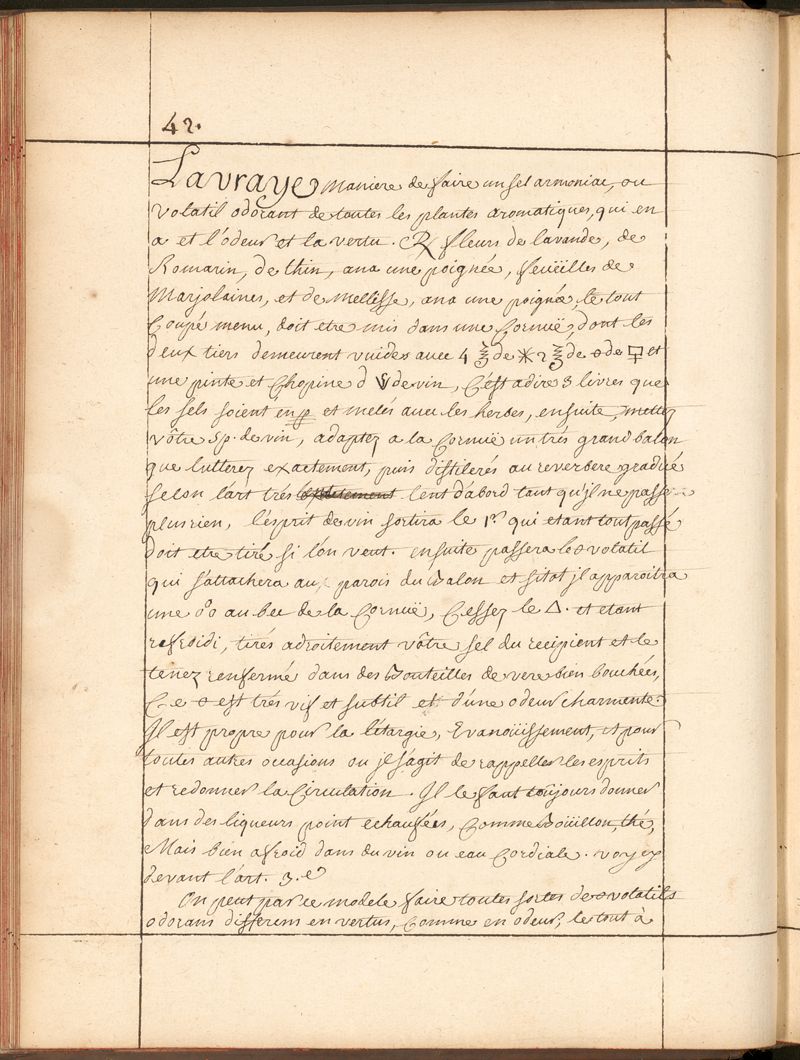 42.
La vraye maniere de faire un sel armoniac, ou
volatil odorant de toutes les plantes aromatiques, qui en
a et l'odeur et la vertu. ℞ fleurs de lavande, de
Romarin, de thin, ana une poignée, feuïlles de
Marjolaines, et de mellisse, ana une poignée, le tout
Coupé menu, doit etre mis dans une Cornuë, dont les
deux tiers demeurent vuides avec 4 ℥ de ✳ 2 ℥ de 🜔 de 🜿 et
une pinte et Chopine d 🜈 de vin, C'est adire 3 livres que
les sels soient en p et melés avec les herbes, ensuite, mettez
vôtre sp. de vin, adaptez a la Cornuë un trés grand balon
que lutterez exactement, puis distilerés au reverbere gradué
selon l'art trés lent d'abord tant qu'jl ne passe
plus rien, l'esprit de vin sortira le 1.er qui etant tout passé
doit etre tiré si l'on veut. ensuite passera le 🜔 volatil
qui s'attachera aux parois du Balon et sitot jl apparoitra
une o°o au bec de la Cornuë, Cessez le △. et etant
refroidi, tirés adroitement vôtre sel du recipient et le
tenez renfermé dans des Bouteilles de vere bien bouchées,
Ce 🜔 est trés vif et subtil et d'une odeur charmente.
Jl est propre pour la létargie, Evanoüissement, et pour
toutes autres occasions ou jl s'agit de rappeller les esprits
et redonner la Circulation. Jl le faut toûjours donner
dans des liqueurs point echaufées, Comme Boüillon, thé,
Mais bien a froid dans du vin ou eau Cordiale. voyez
devant l'art. 3.e
On peut par ce modele faire toutes sortes de 🜔 volatils
odorans differens en vertus, Comme en odeur, le tout à